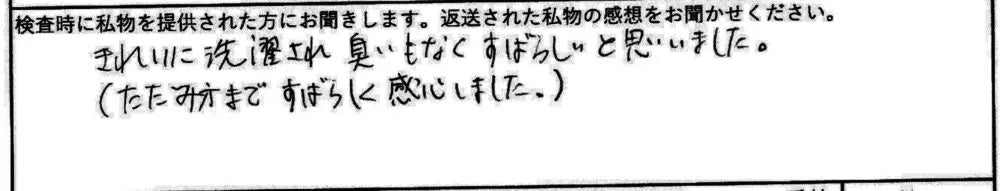 検査時に私物を提供された方にお聞きします。返送された私物の感想をお聞かせください。
きれいに洗濯され臭いもなくすばらしいと思いました。
(たたみ方まですばらしく感心しました。)